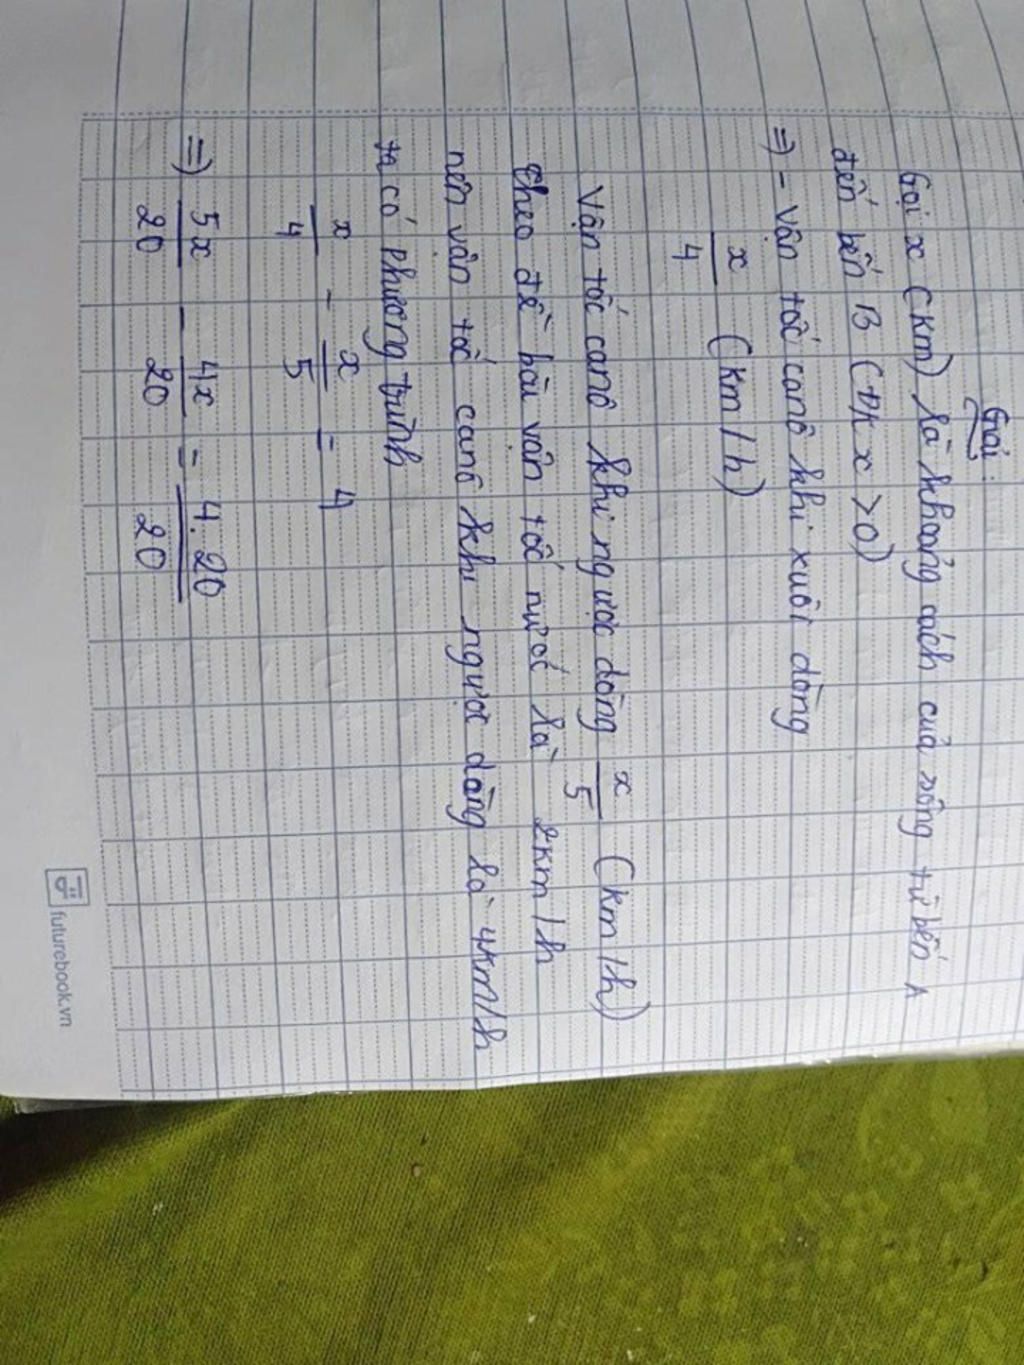 Giải:
Gọi x (km) là khoảng cách của sông từ bến A
đến bến B (ĐK x > 0)
=) - Vận tốc canô khi xuôi dòng
x/4 (km/h)
Vận tốc canô khi ngược dòng x/5 (km/h)
theo đề bài vận tốc nước là 2km/h
nên vận tốc canô khi ngược dòng là 4km/h
ta có phương trình
x/4 - x/5 = 4
=) 5x/20 - 4x/20 = 4.20/20
futurebook.vn